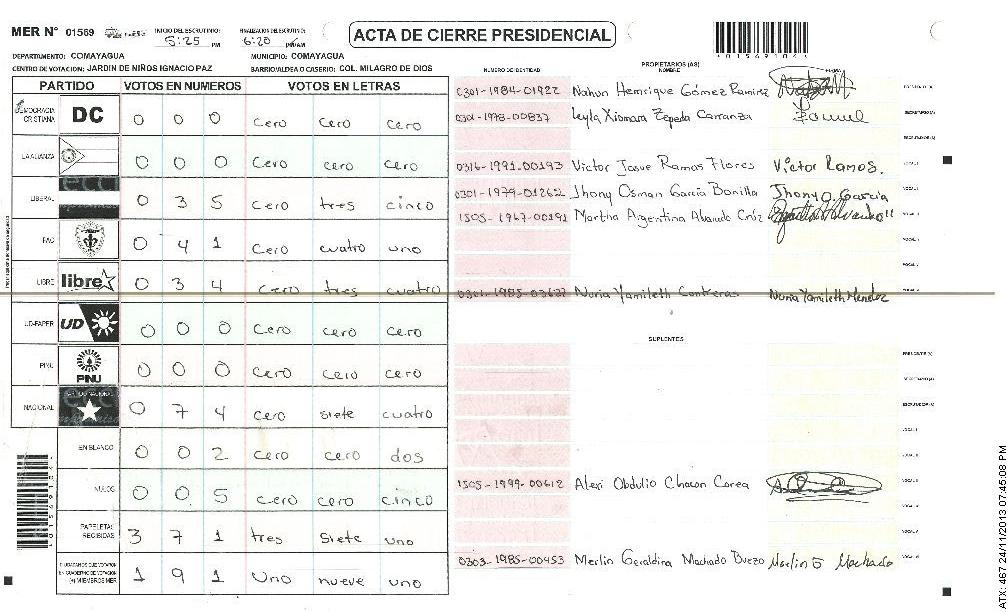 MER N° 01569
INICIO DEL ESCRUTINIO: 5:25 PM
FINALIZACION DEL ESCRUTINIO: 6:20
ACTA DE CIERRE PRESIDENCIAL
DEPARTAMENTO: COMAYAGUA
MUNICIPIO: COMAYAGUA
CENTRO DE VOTACION: JARDIN DE NIÑOS IGNACIO PAZ
BARRIO/ALDEA O CASERIO: COL. MILAGRO DE DIOS
PARTIDO VOTOS EN NUMEROS VOTOS EN LETRAS
DEMOCRACIA CRISTIANA DC 0 0 0 cero cero cero
LA ALIANZA 0 0 0 cero cero cero
LIBERAL 0 3 5 cero tres cinco
PAC 0 4 1 cero cuatro uno
LIBRE libre 0 3 4 cero tres cuatro
UD-FAPER UD 0 0 0 cero cero cero
PINU PINU 0 0 0 cero cero cero
NACIONAL 0 7 4 cero siete cuatro
EN BLANCO 0 0 2 cero cero dos
NULOS 0 0 5 cero cero cinco
PAPELETAS RECIBIDAS 3 7 1 tres siete uno
CIUDADANOS QUE VOTARON EN CUADERNO DE VOTACION (+) MIEMBROS MER 1 9 1 uno nueve uno
NUMERO DE IDENTIDAD
PROPIETARIOS (AS)
NOMBRE
0301-1984-01922 Nahun Hemrique Gómez Ramirez
0301-1978-00837 Leyla Xiomara Zepeda Carranza
0316-1991-00193 Victor Josue Ramos Flores Victor Ramos.
0301-1979-01262 Jhony Osman García Bonilla Jhony O. García
1505-1967-00191 Martha Argentina Alvarado Crúz
0301-1985-03627 Nuria Yamileth Contreras Nuria Yamileth Mendez
SUPLENTES
1505-1999-00612 Alexi Obdulio Chacon Correa
0303-1985-00453 Merlin Geraldina Machado Buezo Merlin G Machado
4015691044
ATX: 467 24/11/2013 07:45:08 PM